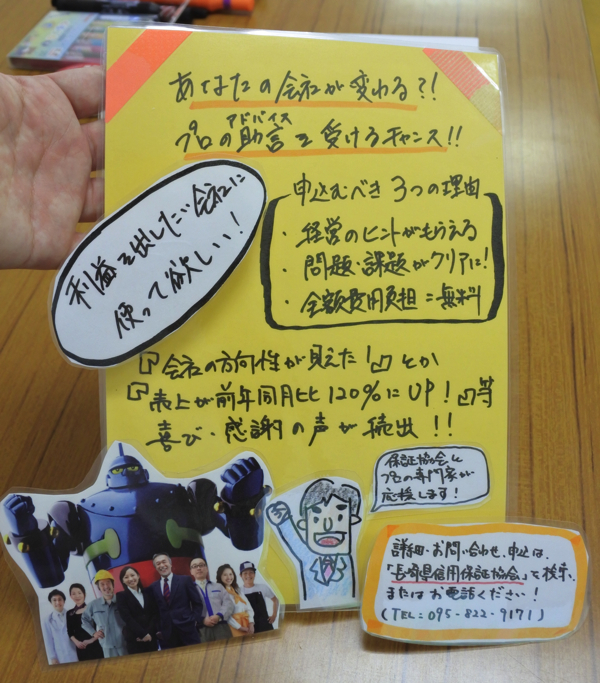 あなたの会社が変わる?!
アドバイス
プロの助言を受けるチャンス!!
利益を出したい会社に
使って欲しい!
申込むべき3つの理由
・経営のヒントがもらえる
・問題・課題がクリアに!
・全額費用負担=無料
『会社の方向性が見えた!』とか
『売上が前年同月比120%にUP!』等
喜び・感謝の声が続出!!
保証協会と
プロの専門家が
応援します!
詳細・お問い合わせ、申込は、
「長崎県信用保証協会」で検索、
またはお電話ください!
(TEL:095-822-9171)